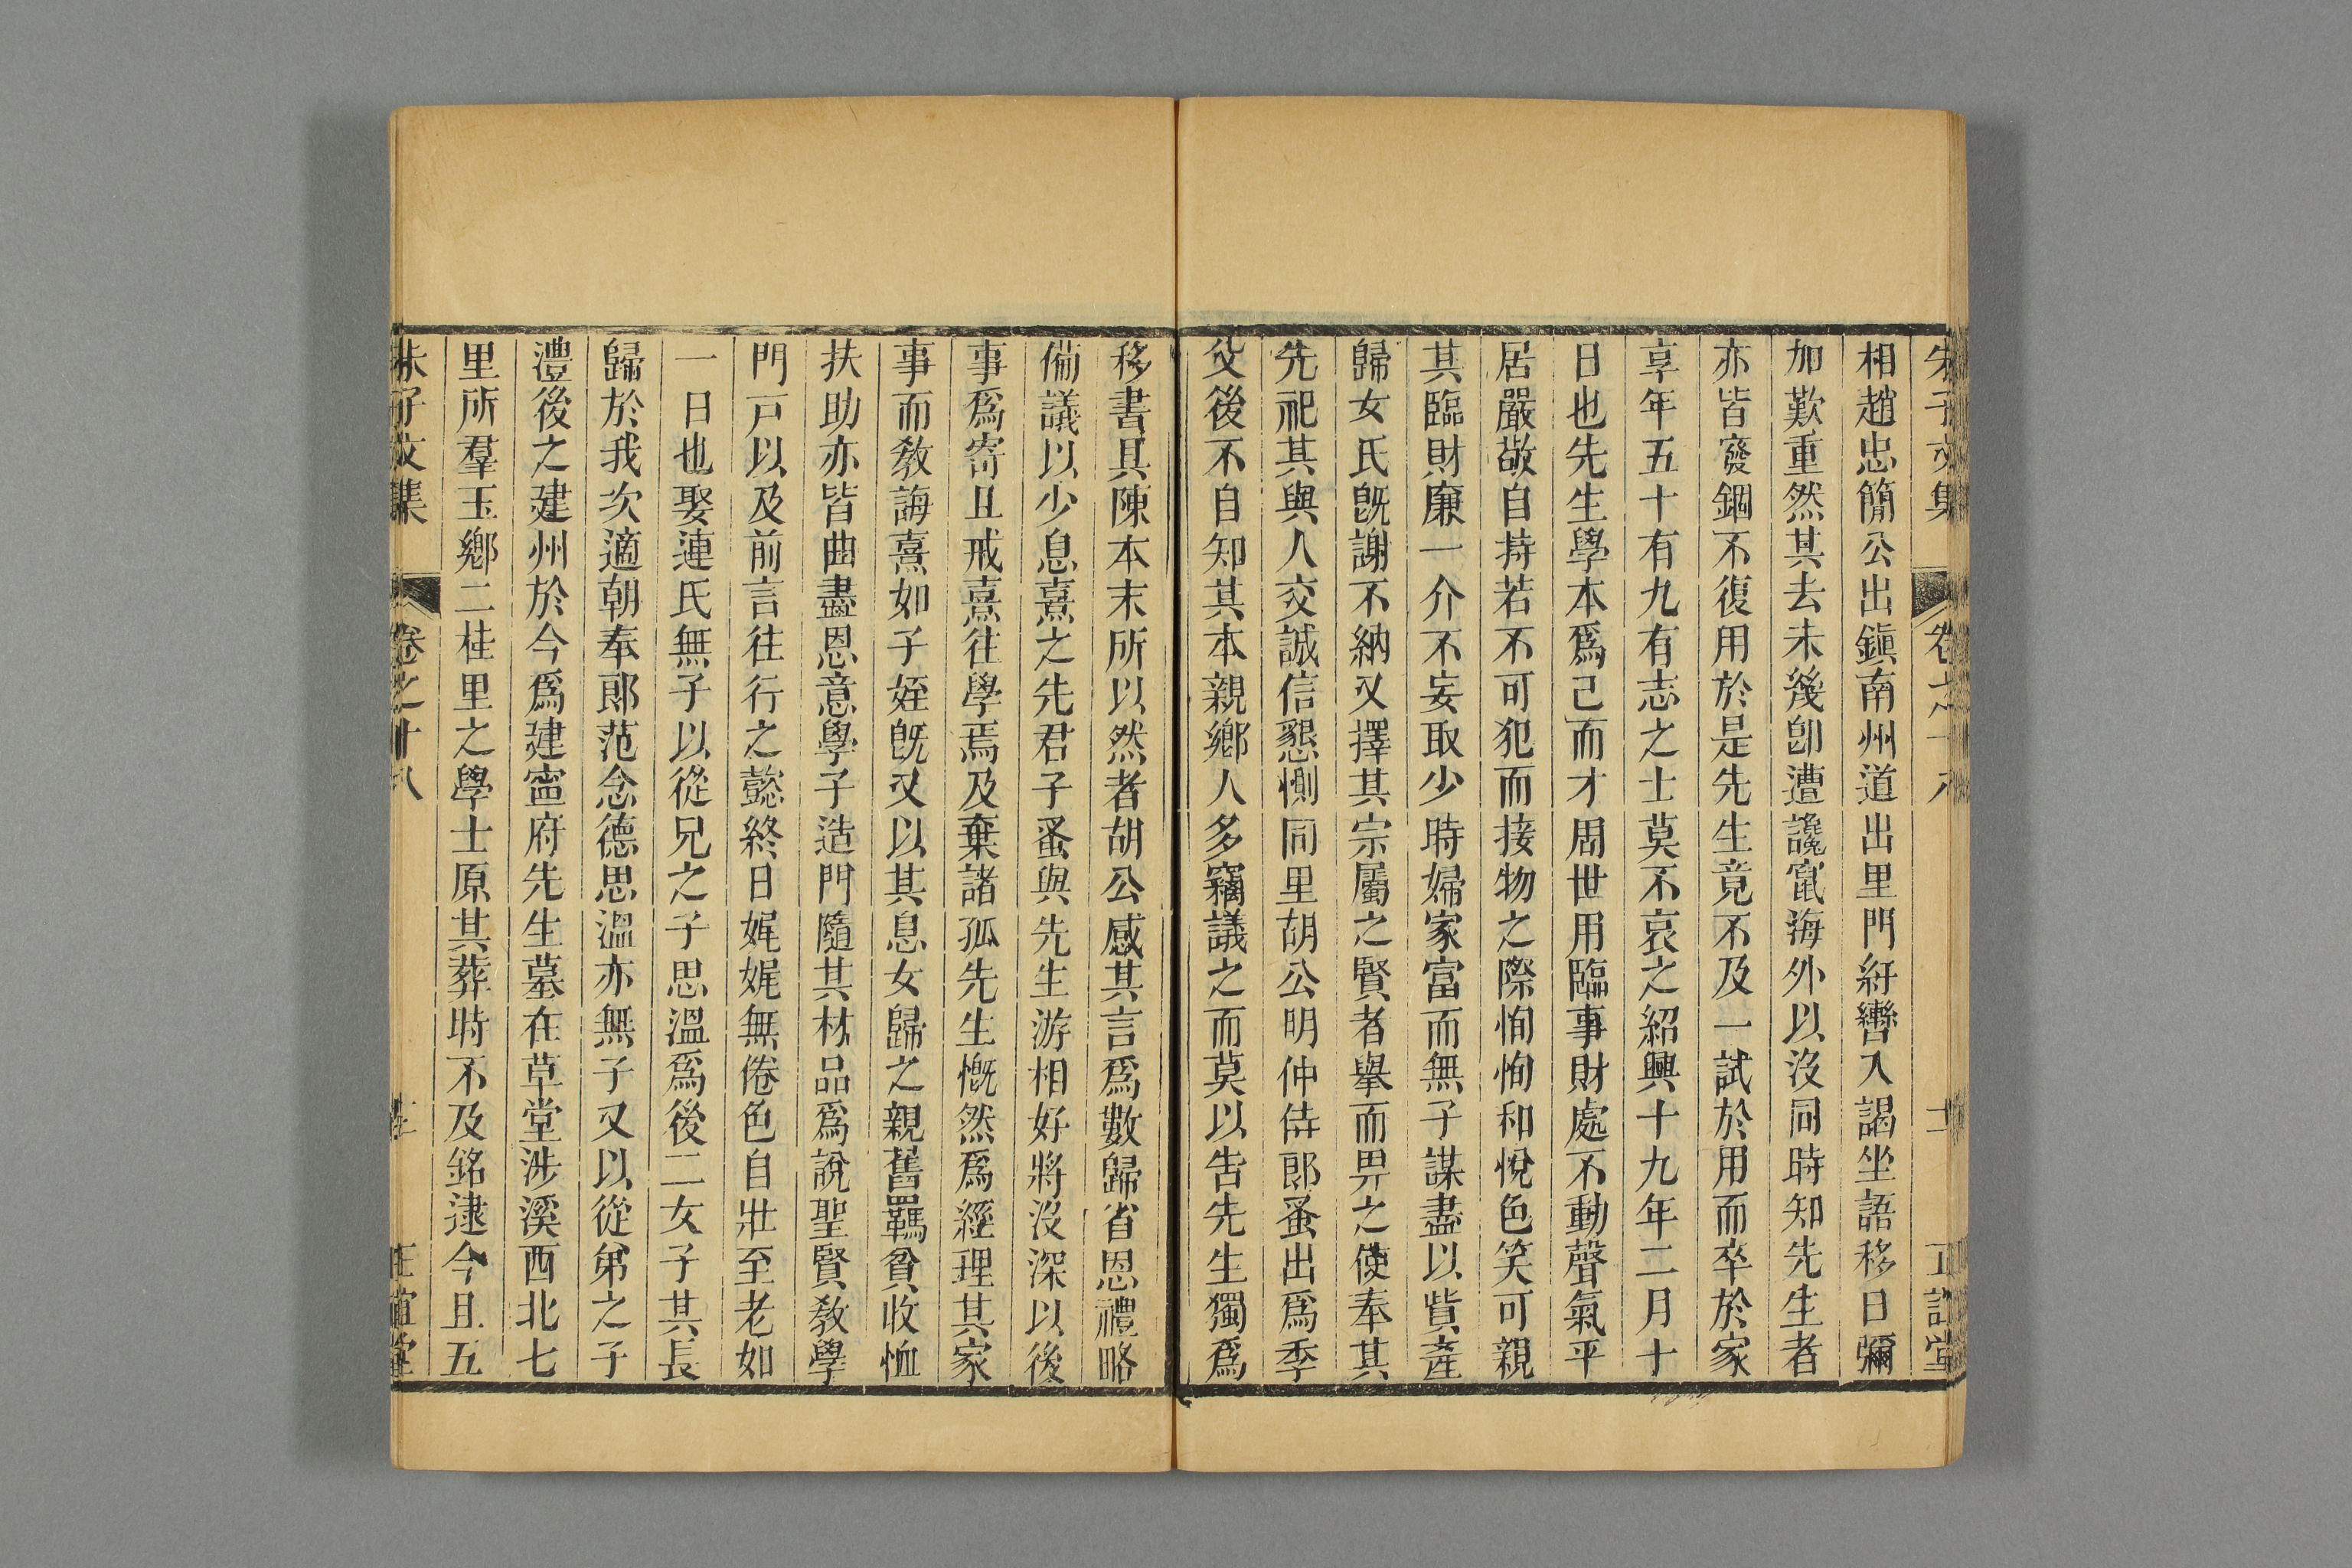 相趙忠簡公出鎭南州道出里門紆轡入謁坐語移日彌
加歎重然其去未幾卽遭讒竄海外以沒同時知先生者
亦皆廢錮不復用於是先生竟不及一試於用而卒於家
享年五十有九有志之士莫不哀之紹興十九年二月十
日也先生學本爲己而才周世用臨事財處不動聲氣平
居嚴敬自持若不可犯而接物之際恂恂和悅色笑可親
其臨財廉一介不妄取少時婦家富而無子謀盡以貲產
歸女氏旣謝不納又擇其宗屬之賢者舉而畀之使奉其
先祀其與人交誠信懇惻同里胡公明仲侍郎蚤出爲季
父後不自知其本親鄉人多竊議之而莫以告先生獨爲
移書具陳本末所以然者胡公感其言爲數歸省恩禮略
備議以少息熹之先君子蚤與先生游相好將沒深以後
事爲寄且戒熹往學焉及棄諸孤先生慨然爲經理其家
事而教誨熹如子姪旣又以其息女歸之親舊羈貧收恤
扶助亦皆曲盡恩意學子造門隨其材品爲說聖賢敎學
門戸以及前言往行之懿終日娓娓無倦色自壯至老如
一日也娶連氏無子以從兄之子思溫爲後二女子其長
歸於我次適朝奉郎范念德思溫亦無子又以從弟之子
澧後之建州於今爲建寧府先生墓在草堂涉溪西北七
里所羣玉鄉二桂里之學士原其葬時不及銘逮今且五
朱子文集 卷之十八